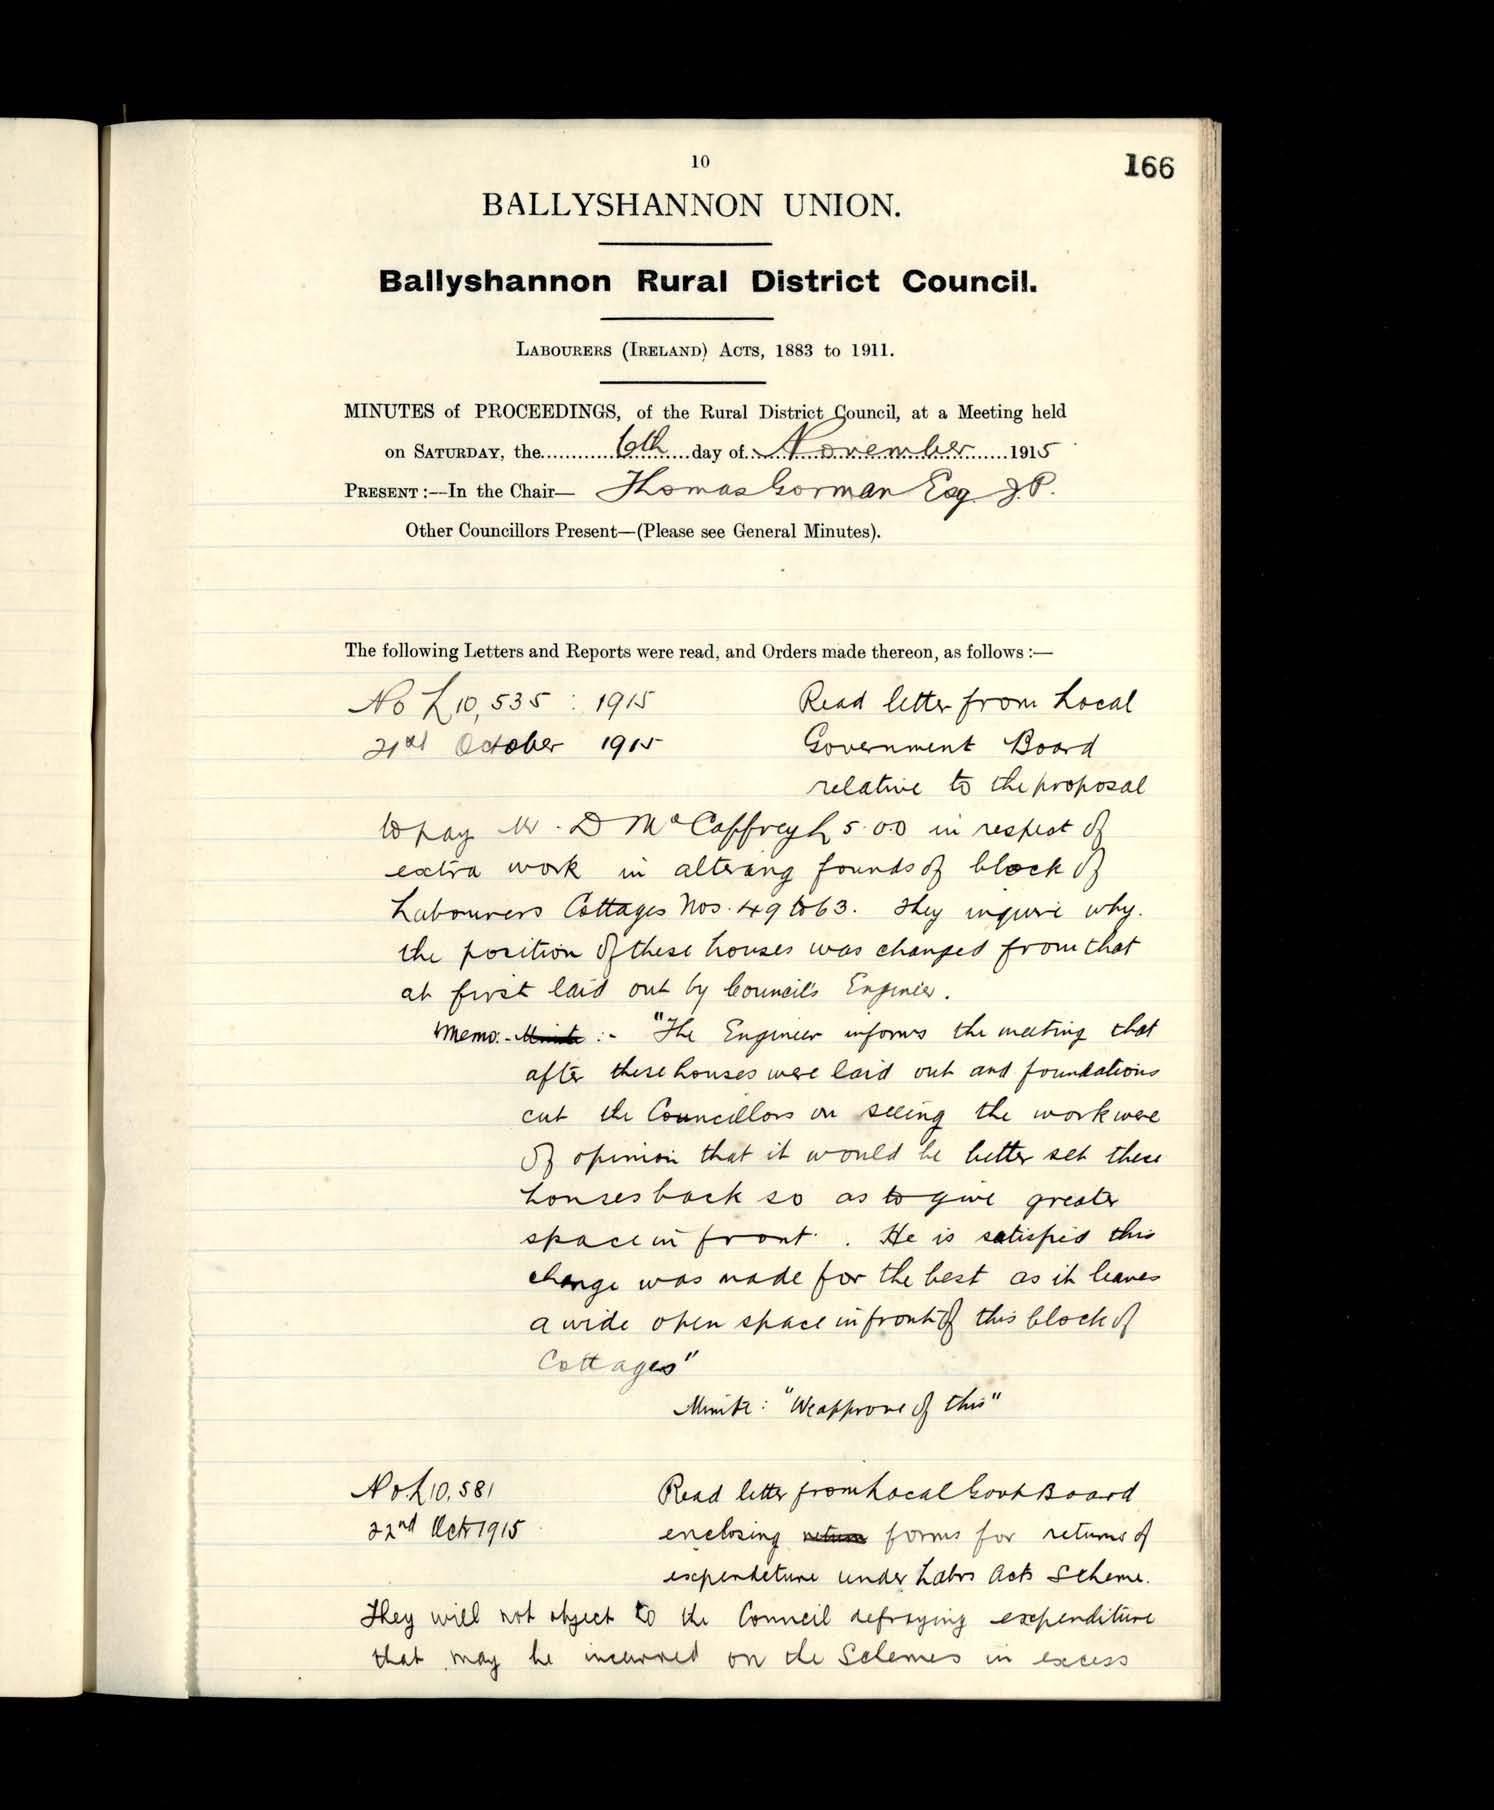 10
166
BALLYSHANNON UNION.
Ballyshannon Rural District Council.
LABOURERS (IRELAND) ACTS, 1883 to 1911.
MINUTES of PROCEEDINGS, of the Rural District Council, at a Meeting held
on SATURDAY, the 6th day of November 1915
PRESENT :—In the Chair— Thomas Gorman Esq J.P.
Other Councillors Present—(Please see General Minutes).
The following Letters and Reports were read, and Orders made thereon, as follows :—
No L 10,535 : 1915 Read letter from Local
21st October 1915 Government Board
relative to the proposal
to pay Mr. D McCaffrey £5.0.0 in respect of
extra work in altering founds of block of
Labourers Cottages Nos. 49 to 63. They inquire why
the position of these houses was changed from that
at first laid out by Council's Engineer.
Memo. - Minute :- "The Engineer informs the meeting that
after these houses were laid out and foundations
cut the Councillors on seeing the work were
of opinion that it would be better set these
houses back so as to give greater
space in front. He is satisfied this
change was made for the best as it leaves
a wide open space in front of this block of
Cottages"
Minute: "We approve of this"
No. L 10,581 Read letter from Local Govt Board
22nd Octr 1915 enclosing return forms for returns of
expenditure under Labrs Acts Scheme.
They will not object to the Council defraying expenditure
that may be incurred on the Schemes in excess